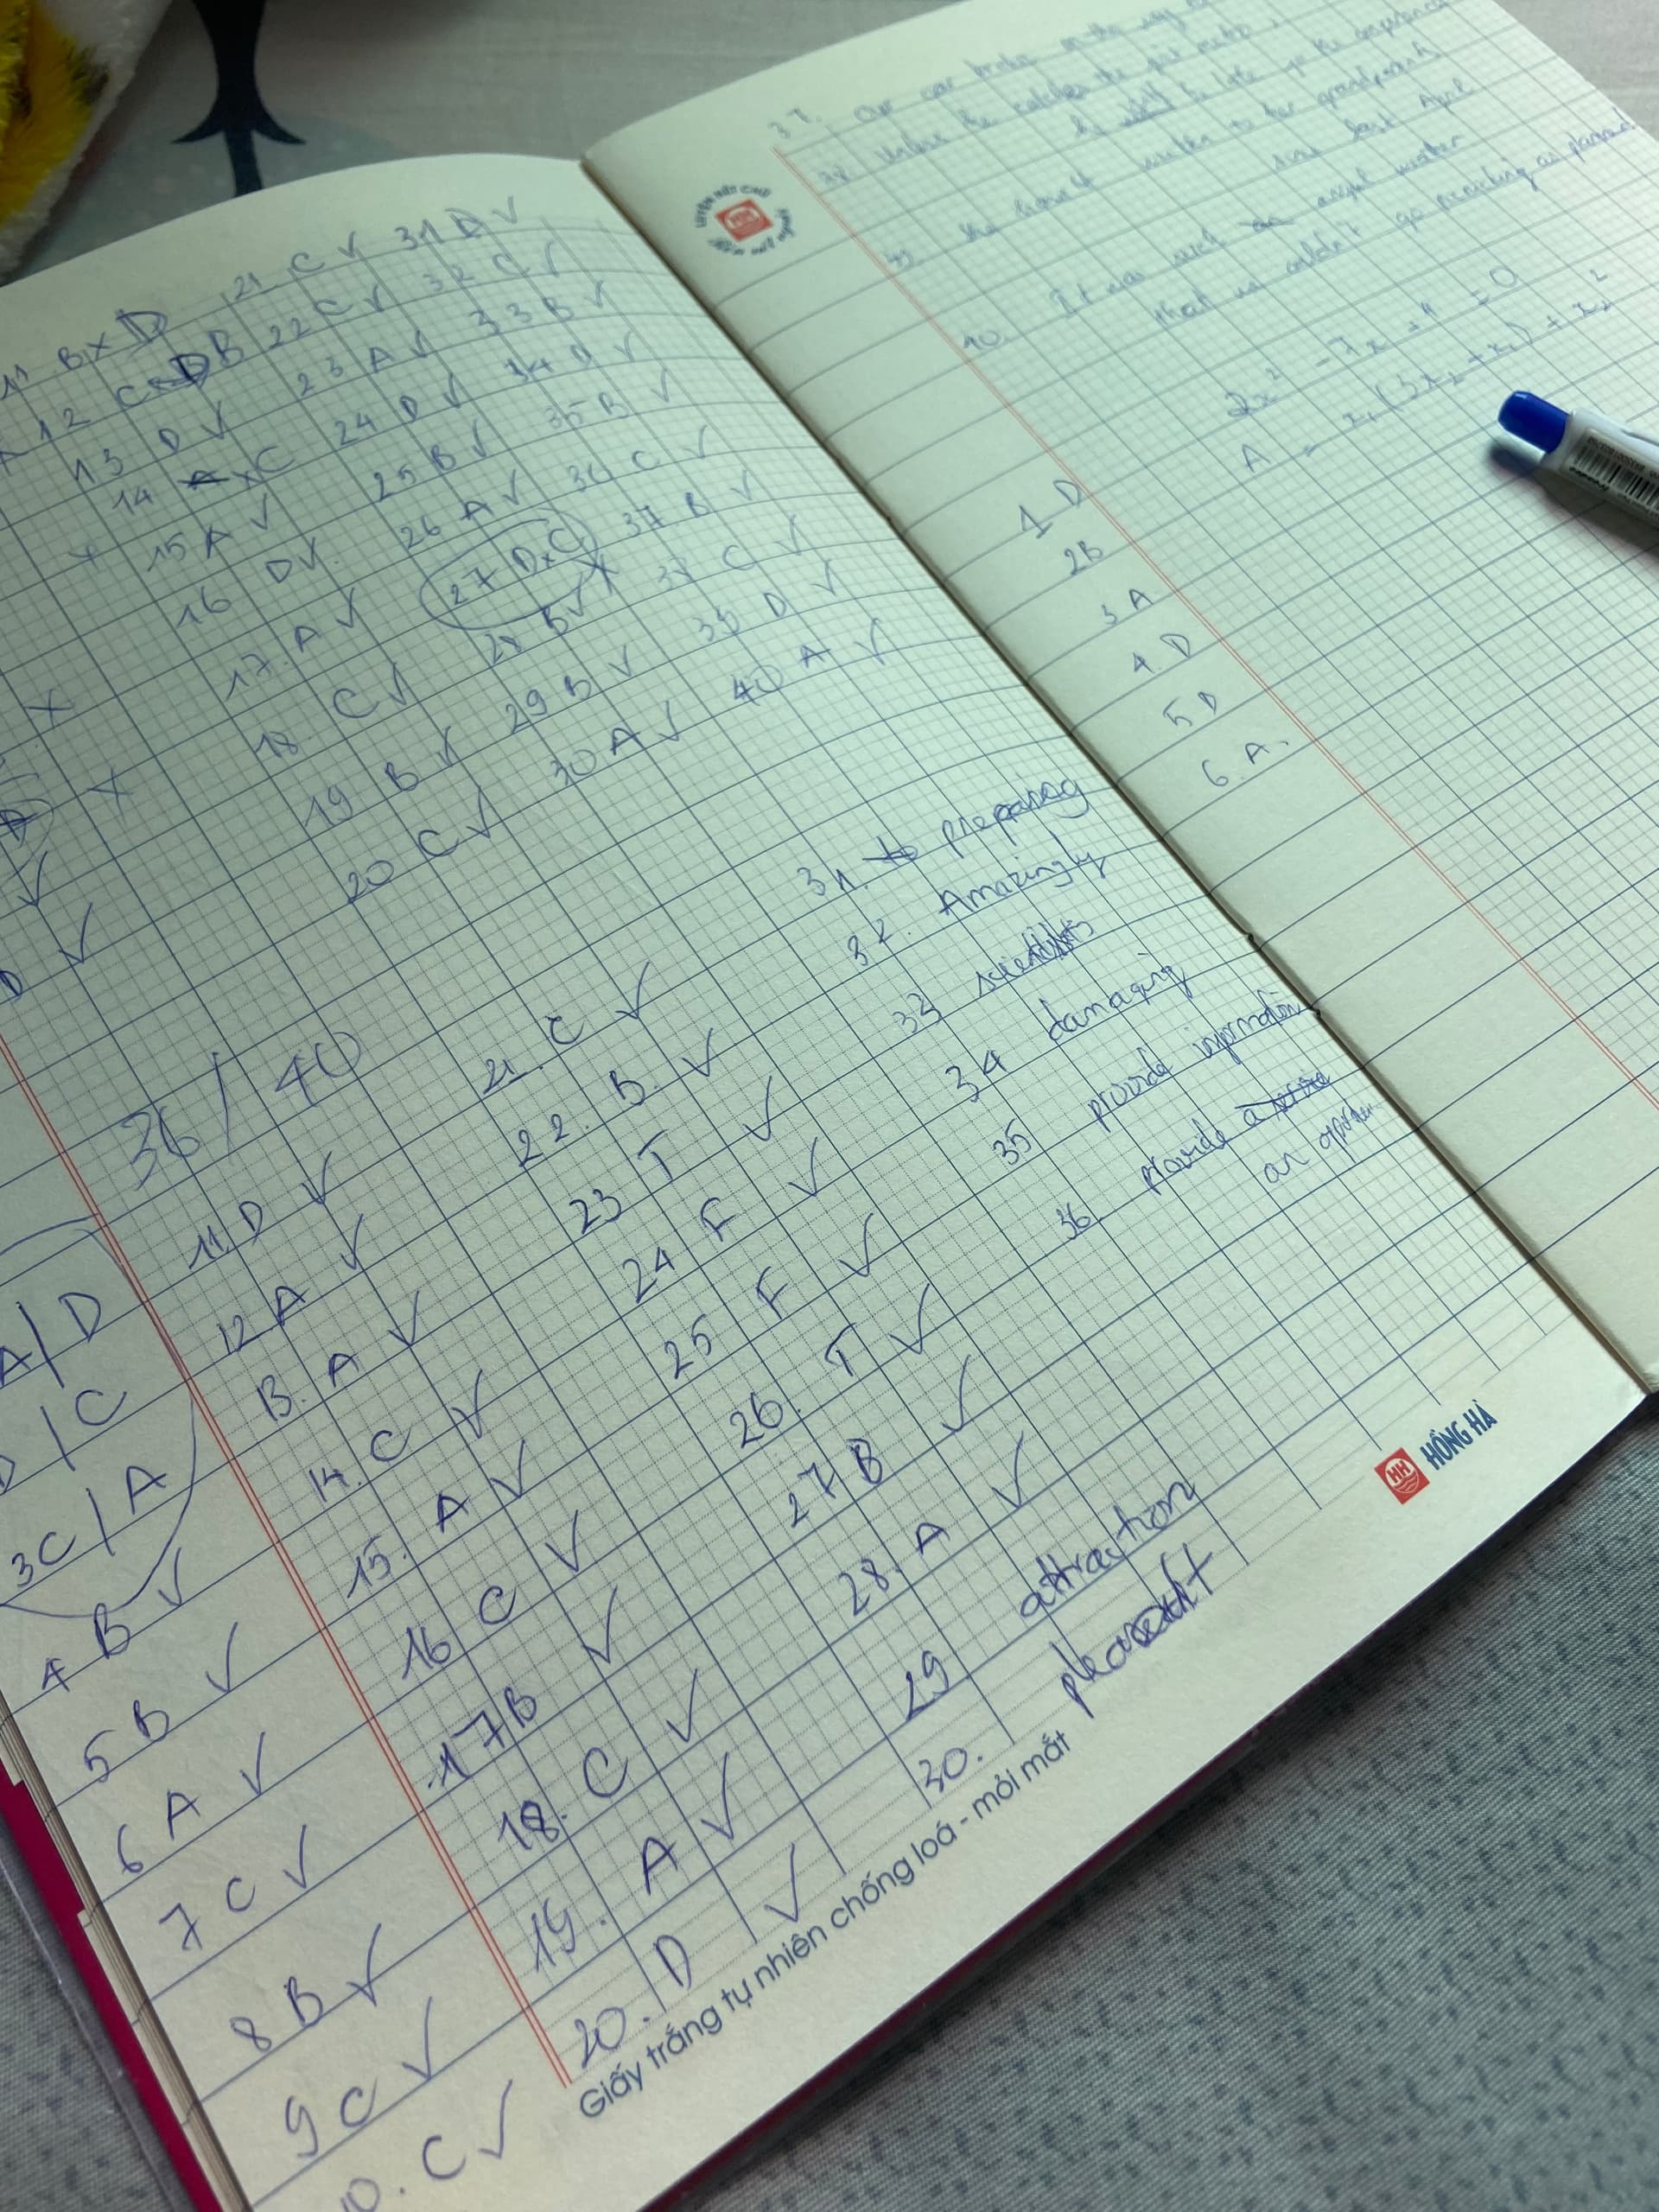 11 B x D
12 C D B
13 D ✓
14 A x C
15 A ✓
16 D ✓
17. A ✓
18 C ✓
19 B ✓
20 C ✓
21. C ✓
22 C ✓
23 A ✓
24 D ✓
25 B ✓
26 A ✓
27 D x C
28 B ✓
29 B ✓
30 A ✓
31 D ✓
32 C ✓
33 B ✓
34 D ✓
35 B ✓
36 C ✓
37 B ✓
38 C ✓
39 D ✓
40 A ✓
D ✓
36 / 40
A / D
D / C
3 C / A
4 B ✓
5 B ✓
6 A ✓
7 C ✓
8 B ✓
9 C ✓
10. C ✓
11. D ✓
12 A ✓
13. A ✓
14. C ✓
15. A ✓
16 C ✓
17 B ✓
18. C ✓
19. A ✓
20. D ✓
21. C ✓
22. B. ✓
23 T ✓
24 F ✓
25 F ✓
26. T ✓
27 B ✓
28. A ✓
29 attraction
30.
31. to preparing
32. Amazingly
33 scientists
34 damaging
35 provide information
36 provide a
an
Giấy trắng tự nhiên chống loá - mỏi mắt
HH HỒNG HÀ
37. Our car broke on the way
38. Unless he catches the first metro,
he late for the
39. She hasn't written to her grandparents
since last April
40. It was such an awful weather
that we couldn't go picnicking as planned
HH
2x² - 7x + 4 = 0
A = x₁(3x₂ + x₁) + x₂²
1 D
2 B
3 A
4 D
5 D
6. A.